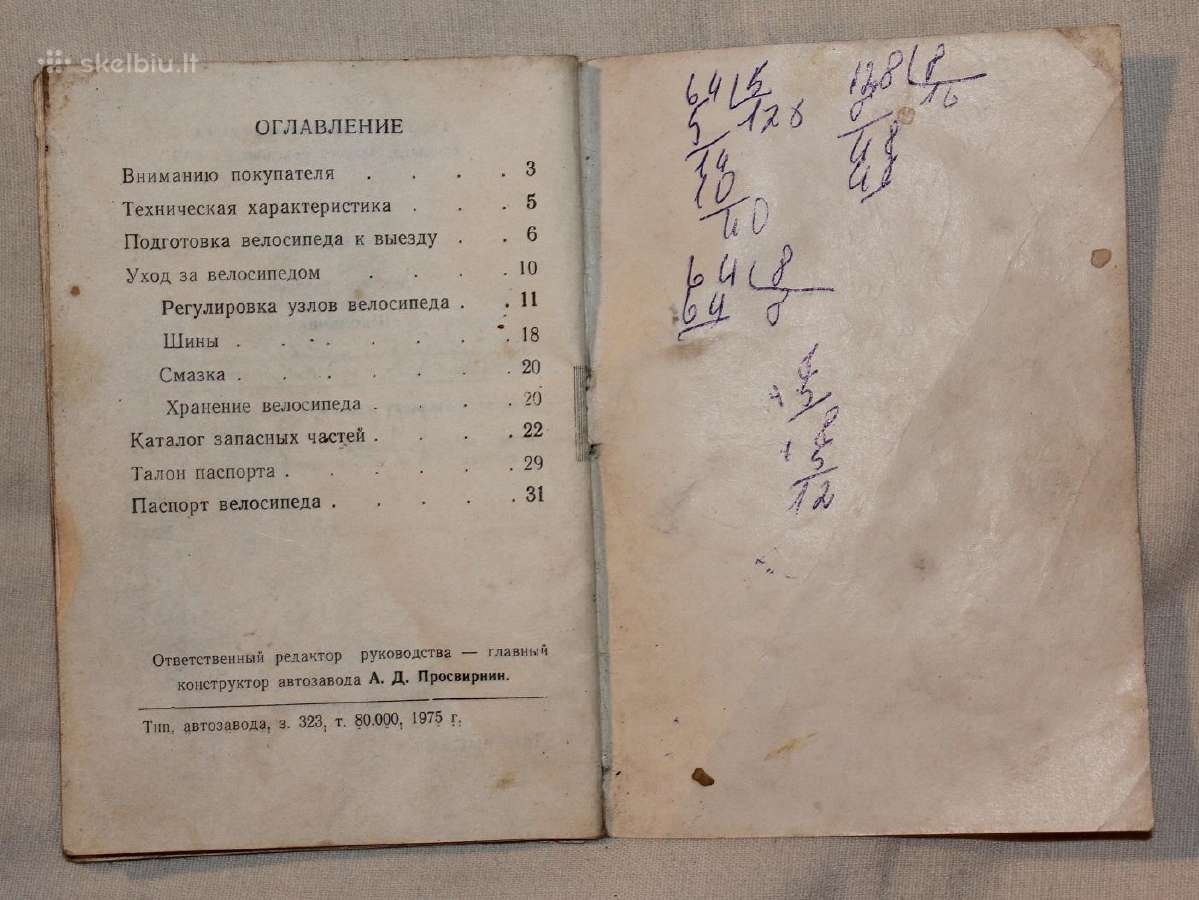 skelbiu.lt
ОГЛАВЛЕНИЕ
Вниманию покупателя . . . . 3
Техническая характеристика . . . 5
Подготовка велосипеда к выезду . . 6
Уход за велосипедом . . . . 10
Регулировка узлов велосипеда . . 11
Шины . . . . . . . 18
Смазка . . . . . . 20
Хранение велосипеда . . . . 20
Каталог запасных частей . . . . 22
Талон паспорта . . . . . 29
Паспорт велосипеда . . . . . 31
Ответственный редактор руководства — главный
конструктор автозавода А. Д. Просвирнин.
Тип. автозавода, з. 323, т. 80.000, 1975 г.
64 5
5 128
14
10
40
128 8
8 16
48
48
64 8
64 8
+ 5
+ 5
12